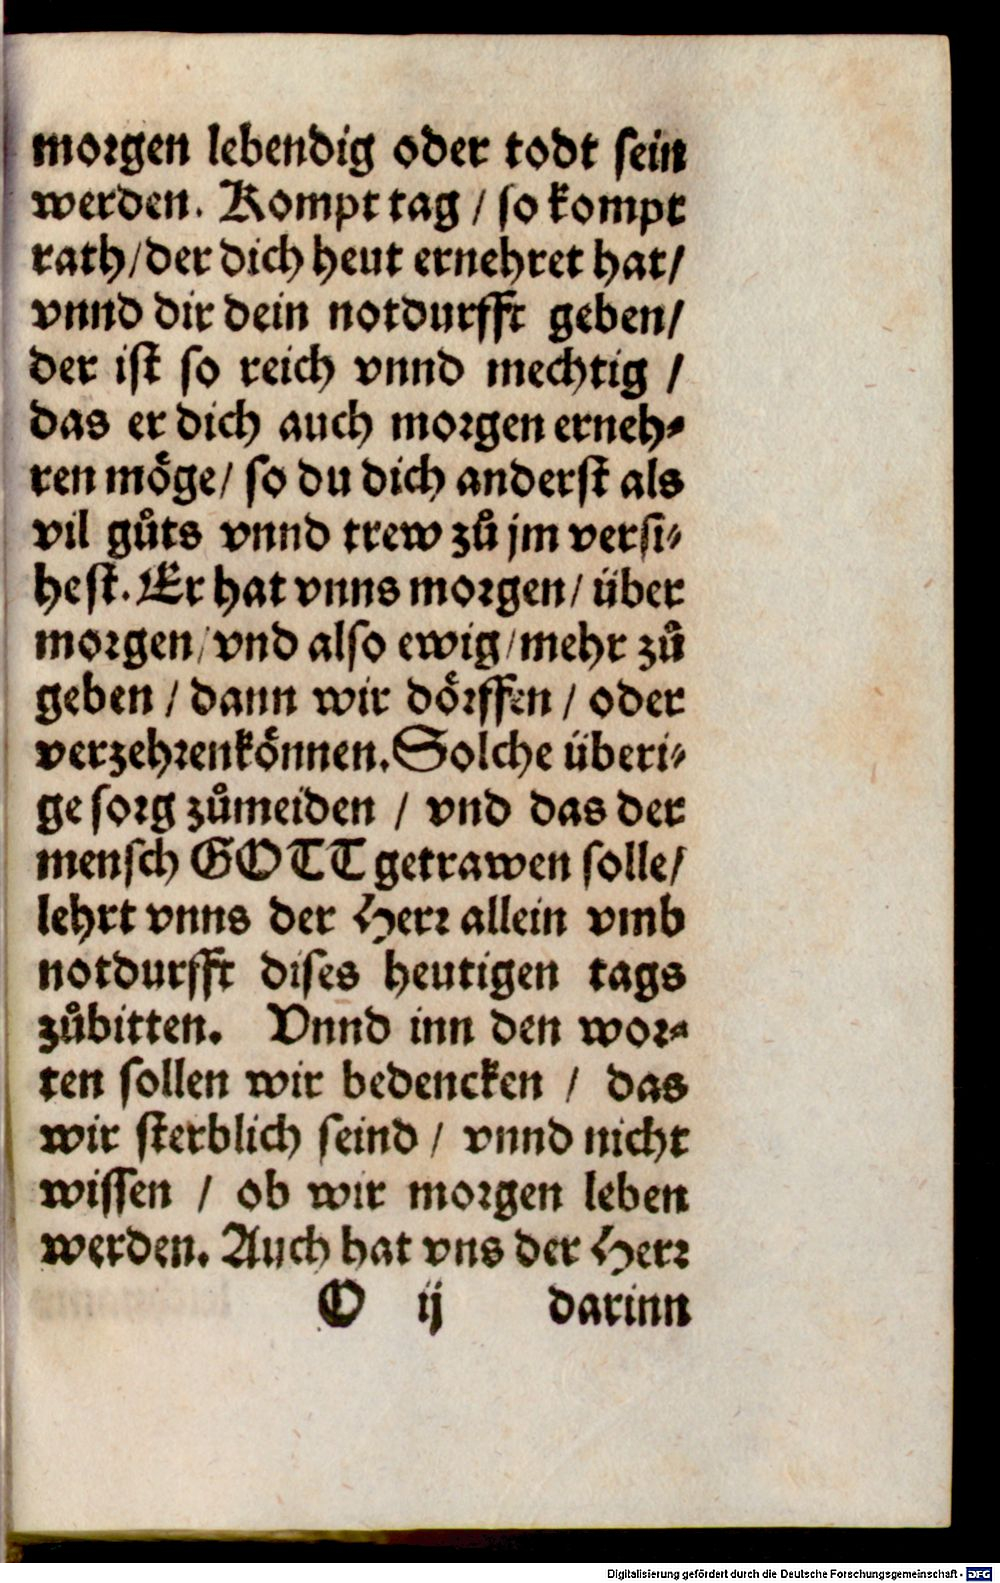 morgen lebendig oder todt sein
werden. Kompt tag / so kompt
rath / der dich heut ernehret hat /
vnnd dir dein notdurfft geben /
der ist so reich vnnd mechtig /
das er dich auch morgen erneh⸗
ren möge / so du dich anderst als
vil gůts vnnd trew zů jm versi⸗
hest. Er hat vnns morgen / über
morgen / vnd also ewig / mehr zů
geben / dann wir dörffen / oder
verzehrenkönnen. Solche überi⸗
ge sorg zůmeiden / vnd das der
mensch GOTT getrawen solle /
lehrt vnns der Herr allein vmb
notdurfft dises heutigen tags
zůbitten. Vnnd inn den wor⸗
ten sollen wir bedencken / das
wir sterblich seind / vnnd nicht
wissen / ob wir morgen leben
werden. Auch hat vns der Herr
O ij darinn
Digitalisierung gefördert durch die Deutsche Forschungsgemeinschaft - DFG